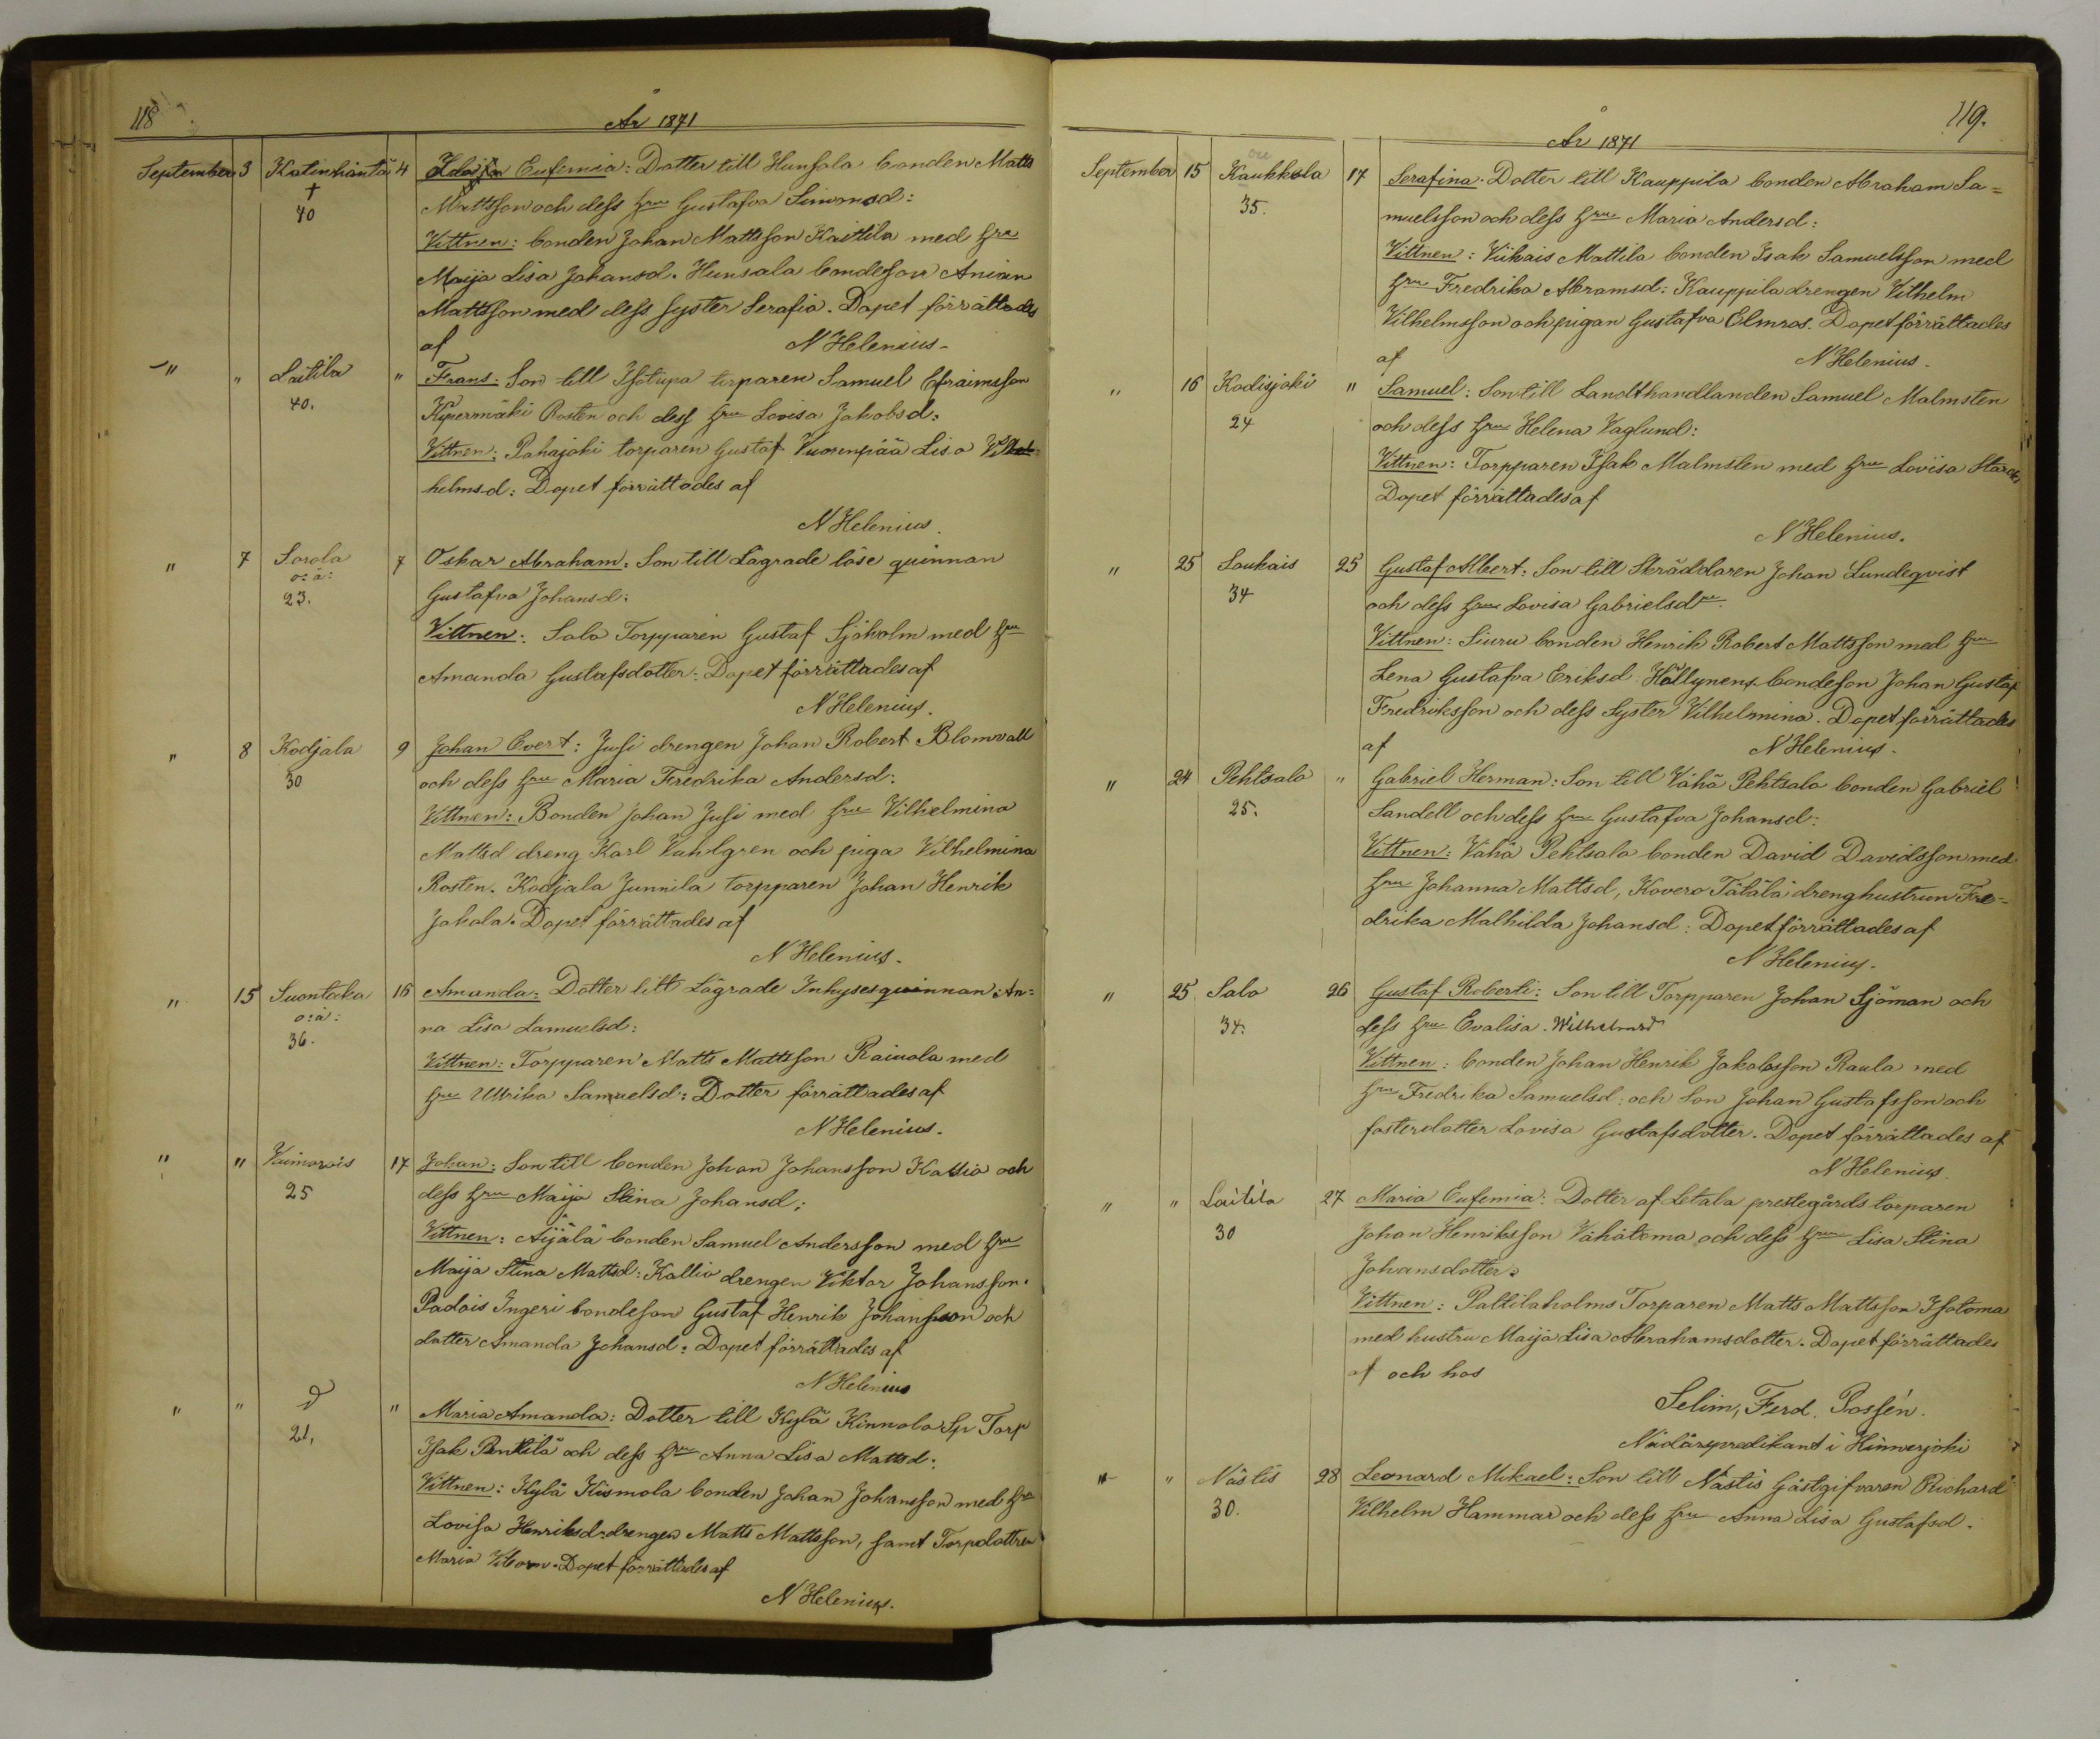 118
År 1871
September 3 Katinhäntä 4 Eufemia: Dotter till Hunsala bonden Matts
† Mattsson och dess hru Gustafva Simonsd:
40 Vittnen: bonden Johan Mattsson Kaitila med hru
Maija Lisa Johansd. Hunsala bondeson Anian
Mattsson med dess syster Serafia. Dopet förrättades
af N Helenius.
" " Laitila " Frans: Son till Isotupa torparen Samuel Efraimsson
40. Kipermäki Rosten och dess hru Lovisa Jakobsd:
Vittnen: Pahajoki torparen Gustaf Vuorenpää Lisa Vil
helmsd: Dopet förrättades af
N Helenius.
" 7 Sorola 7 Oskar Abraham: Son till Lägrade löse quinnan
o: ä: Gustafva Johansd:
23. Vittnen: Salo Torpparen Gustaf Sjöholm med hru
Amanda Gustafsdotter: Dopet förrättades af
N Helenius.
" 8 Kodjala 9 Johan Evert: Jusi drengen Johan Robert Blomvall
30 och dess hru Maria Fredrika Andersd:
Vittnen: Bonden Johan Jusi med hru Vilhelmina
Mattsd dreng Karl Vahlgren och piga Vilhelmina
Rosten. Kodjala Junnila torpparen Johan Henrik
Jakola. Dopet förrättades af
N Helenius.
" 15 Suontaka 16 Amanda: Dotter till Lägrade Inhysesquinnan An=
o: ä: na Lisa Samuelsd:
36. Vittnen: Torpparen Matts Mattsson Rainola med
hru Ullrika Samuelsd: Dotter förrättades af
N Helenius.
" " Vaimarois 17 Johan: Son till bonden Johan Johansson Kallio och
25 dess hru Maija Stina Johansd:
Vittnen: Äijälä bonden Samuel Andersson med hru
Maija Stina Mattsd: Kallio drengen Viktor Johansson.
Padois Ingeri bondeson Gustaf Henrik Johansson och
dotter Amanda Johansd: Dopet förrättades af
N Helenius
" " " Maria Amanda: Dotter till Kylä Kinnola Sp Torp
21. Isak Penttilä och dess hru Anna Lisa Mattsd:
Vittnen: Kylä Kinnola bonden Johan Johansson med hru
Lovisa Henriksd: drengen Matts Mattsson, samt Torpdottren
Maria Viborn. Dopet förrättades af
N Helenius.
119.
År 1871
September 15 Kaukkola 17 Serafina: Dotter till Kauppila bonden Abraham Sa=
35. muelsson och dess hru Maria Andersd:
Vittnen: Viikais Mattila bonden Isak Samuelsson med
hru Fredrika Abramsd: Kauppila drengen Vilhelm
Vilhelmsson och pigan Gustafva Elmros. Dopet förrättades
af N Helenius.
" 16 Kodisjoki " Samuel: Son till Landthandlanden Samuel Malmsten
24 och dess hru Helena Vaglund:
Vittnen: Torpparen Isak Malmsten med hru Lovisa
Dopet förrättades af
N Helenius.
" 25 Soukais 25 Gustaf Albert: Son till Skräddaren Johan Lundeqvist
34 och dess hru Lovisa Gabrielsdr.
Vittnen: Siuru bonden Henrik Robert Mattsson med hru
Lena Gustafva Eriksd Köllynens bondeson Johan Gustaf
Fredriksson och dess Syster Vilhelmina. Dopet förrättades
af N Helenius.
" 24 Pehtsalo " Gabriel Herman: Son till Vähä Pehtsalo bonden Gabriel
25. Sandell och dess hru Gustafva Johansd:
Vittnen: Vähä Pehtsalo bonden David Davidsson med
hru Johanna Mattsd, Kovero Tätälä drenghustrun Fre=
drika Mathilda Johansd: Dopet förrättades af
N Helenius.
" 25 Salo 26 Gustaf Roberti: Son till Torpparen Johan Sjöman och
34. dess hru Evalisa. Wilhelmsdr
Vittnen: bonden Johan Henrik Jakobsson Raula med
hru Fredrika Samuelsd: och Son Johan Gustafsson och
fosterdotter Lovisa Gustafsdotter. Dopet förrättades af
N Helenius.
" " Laitila 27 Maria Eufemia: Dotter af Letala prestegårds torparen
30 Johan Henriksson Vähätoma och dess hru Lisa Stina
Johansdotter.
Vittnen: Palttilaholms Torparen Matts Mattsson Isotoma
med hustru Maija Lisa Abrahamsdotter. Dopet förrättades
af och hos
Selim, Ferd. Possén.
Nödårspredikant i Hinnerjoki
" " Nästis 28 Leonard Mikael: Son till Nästis Gästgifvaren Richard
30. Vilhelm Hammar och dess hru Anna Lisa Gustafsd.